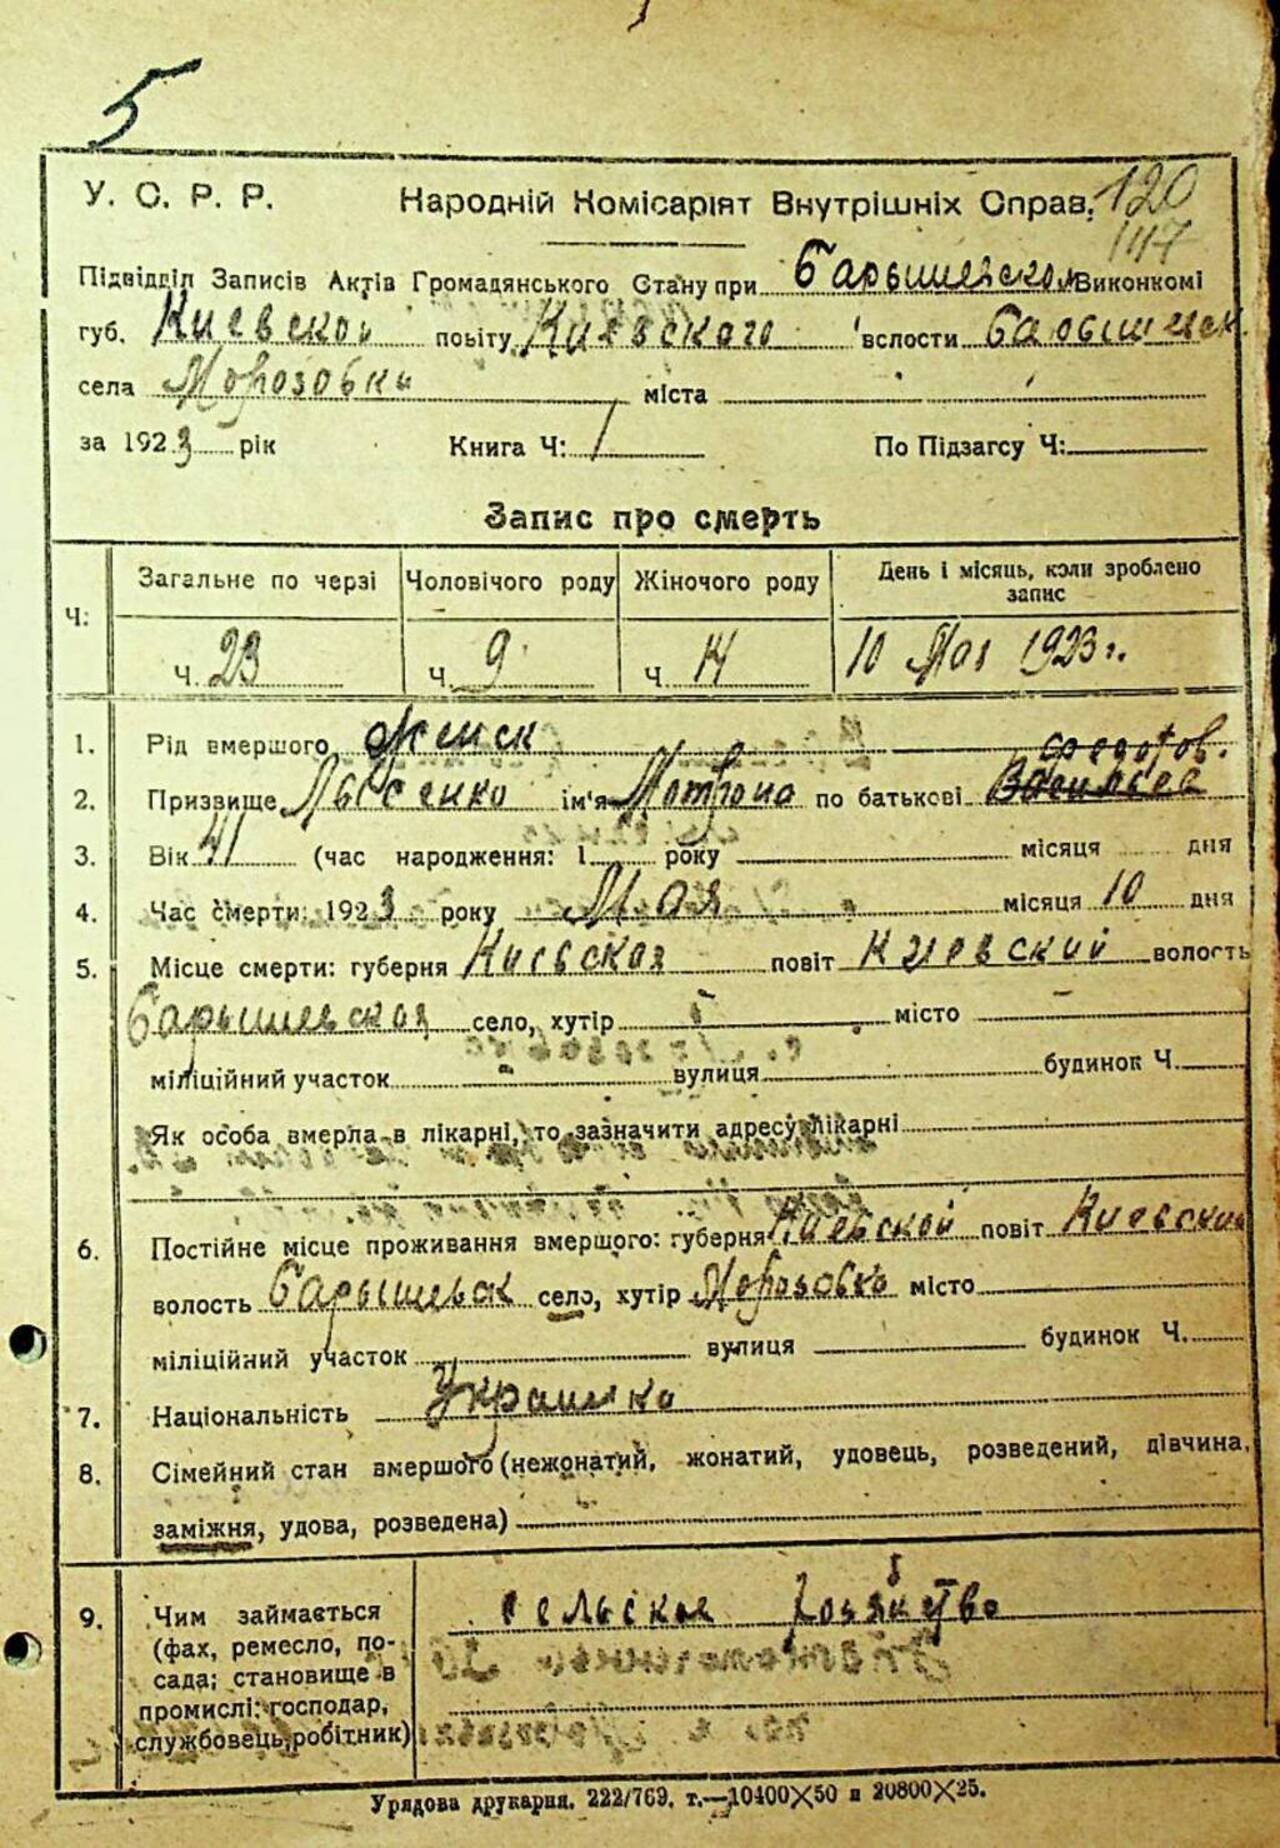 5
У. С. Р. Р. Народній Комісаріят Внутрішніх Справ. 120
117
Підвідділ Записів Актів Громадянського Стану при Барышевском Виконкомі
губ. Киевской повіту Киевского вслости Барышевск.
села Морозовки міста
за 1923 рік Книга Ч: 1 По Підзагсу Ч:
Запис про смерть
Ч: Загальне по черзі Чоловічого роду Жіночого роду День і місяць, коли зроблено запис
ч. 23 ч. 9 ч. 14 10 Мая 1923 г.
1. Рід вмершого женск
Федотов.
2. Призвище Лысенко ім'я Мотрона по батькові Васильев
3. Вік 41 (час народження: 1 року місяця дня
4. Час смерти: 1923 року Мая місяця 10 дня
5. Місце смерти: губерня Киевская повіт Киевский волость
Барышевская село, хутір місто
міліційний участок вулиця будинок Ч.
Як особа вмерла в лікарні, то зазначити адресу лікарні
6. Постійне місце проживання вмершого: губерня Киевской повіт Киевский
волость Барышевск село, хутір Морозовка місто
міліційний участок вулиця будинок Ч.
7. Національність Украинка
8. Сімейний стан вмершого (нежонатий, жонатий, удовець, розведений, дівчина,
заміжня, удова, розведена)
9. Чим займається сельское хозяйство
(фах, ремесло, по-
сада; становище в
промислі: господар,
службовець, робітник)
Урядова друкарня. 222/769. т.—10400X50 и 20800X25.